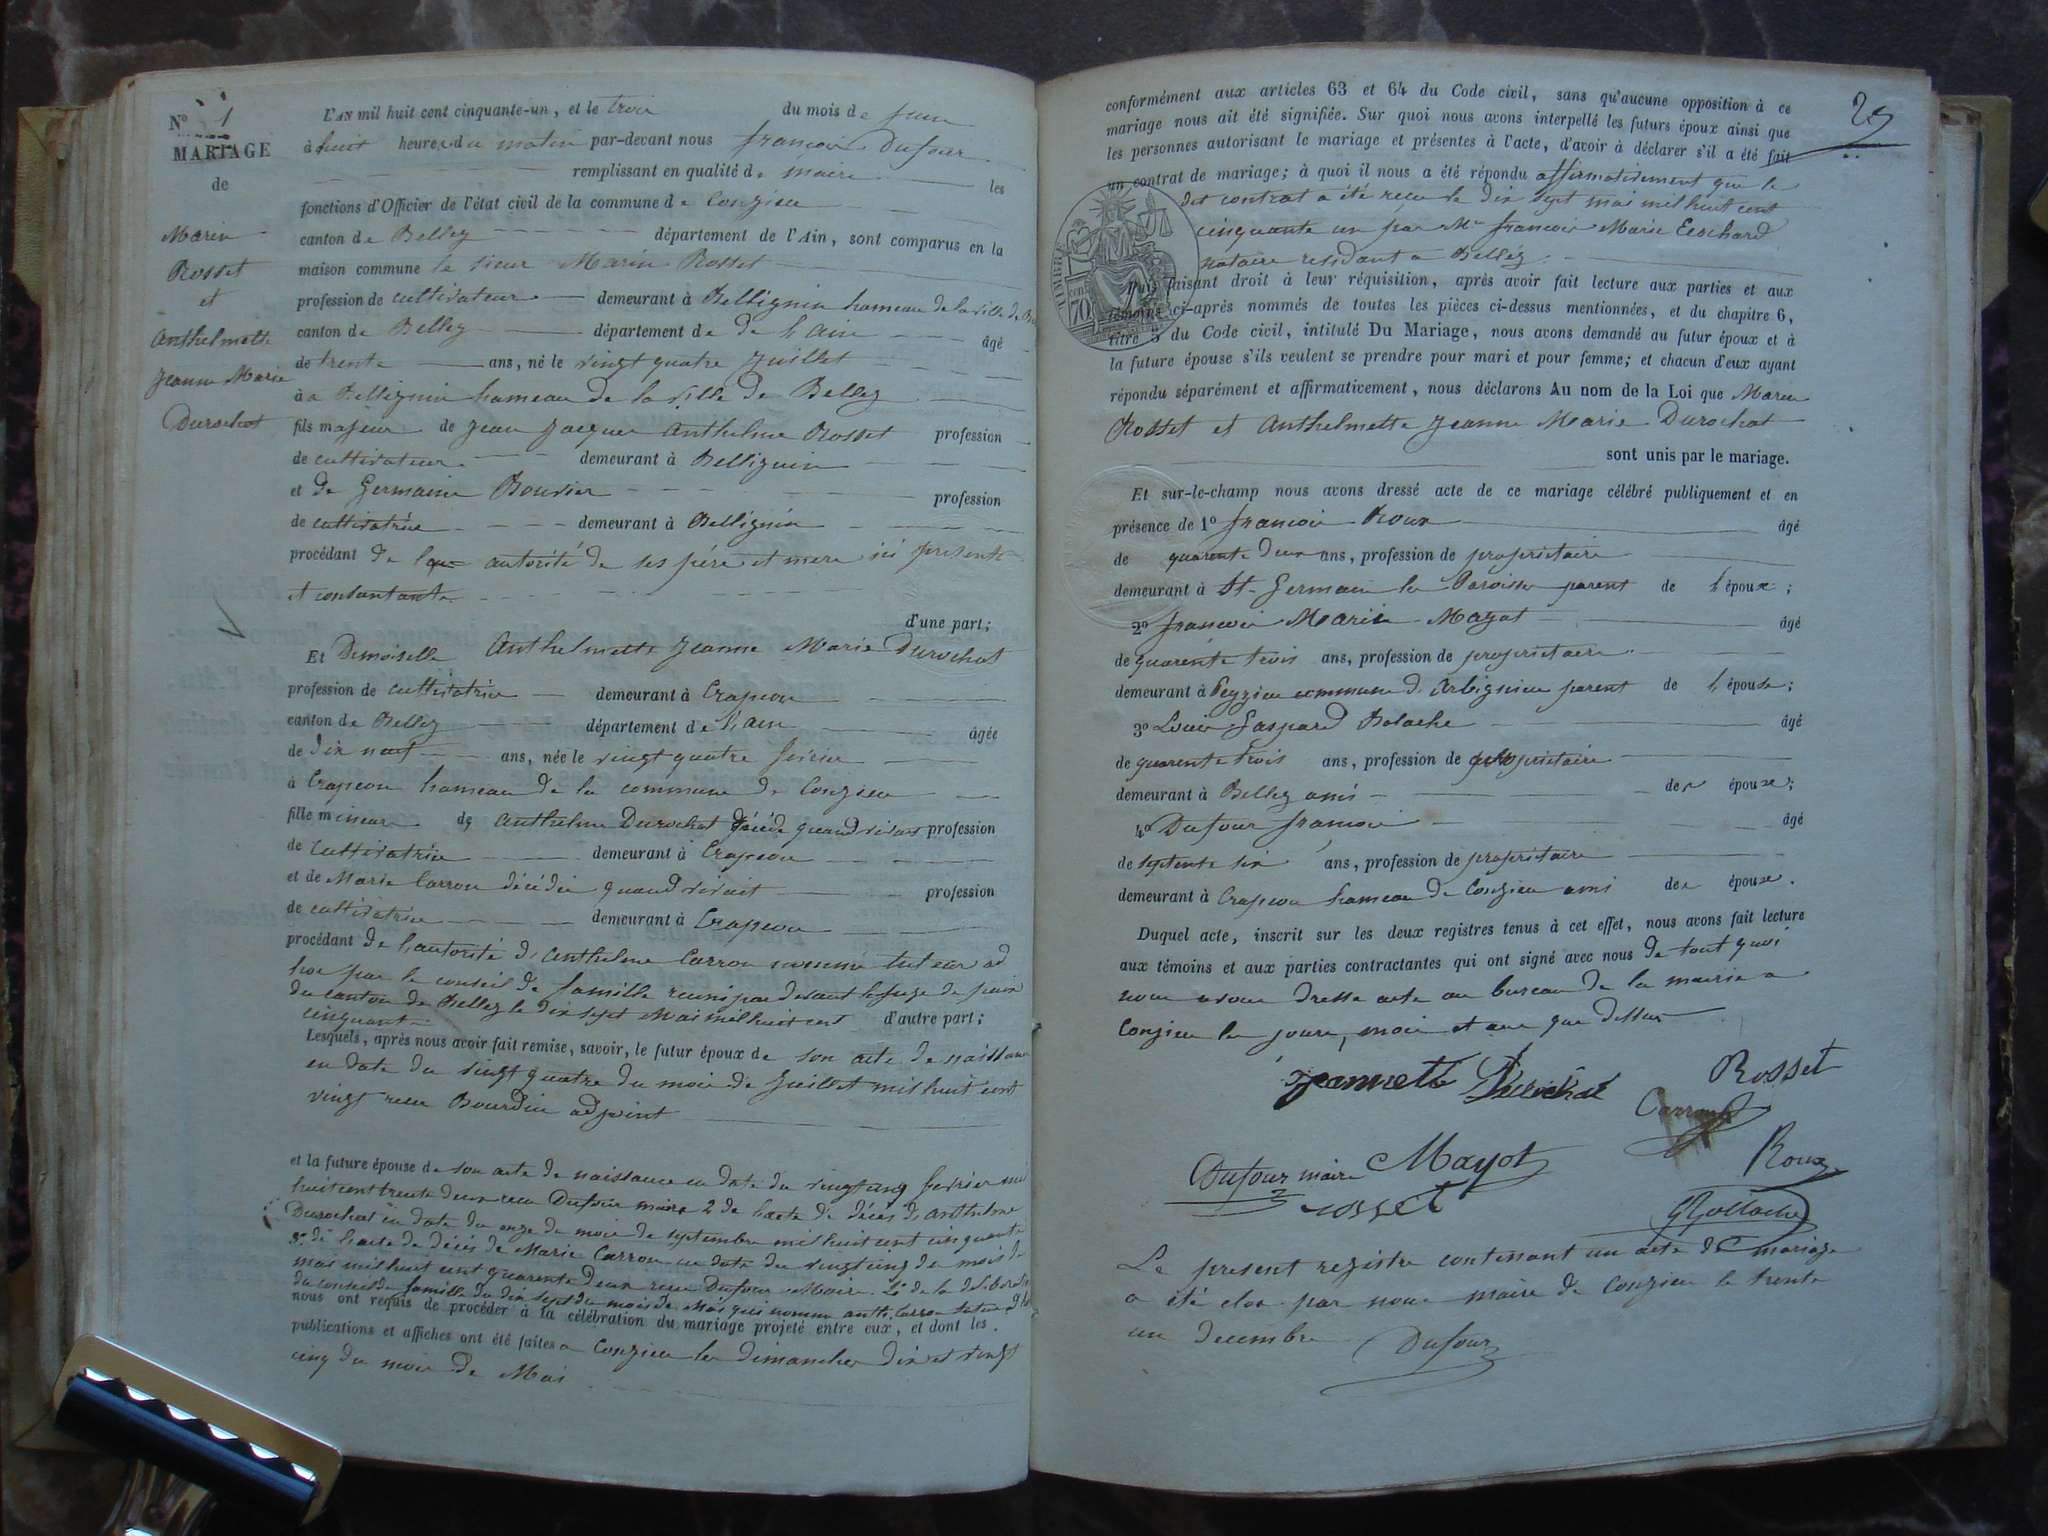 N° 1
MARIAGE
de
Marin
Rosset
et
Anthelmette
Jeanne Marie
Durochat
L'AN mil huit cent cinquante-un, et le trois du mois de Juin
à huit heures du matin par-devant nous françois Dufour
remplissant en qualité de maire les
fonctions d'Officier de l'état civil de la commune de Conzieu
canton de Belley département de l'Ain, sont comparus en la
maison commune le sieur Marin Rosset
profession de cultivateur demeurant à Bellignin hameau de la ville de
canton de Belley département de de l'ain âgé
de trente ans, né le vingt quatre Juillet
à a Bellignin hameau de la ville de Belley
fils majeur de Jean Jacques Anthelme Rosset profession
de cultivateur demeurant à Bellignin
et de Germaine Bouvier profession
de cultivatrice demeurant à Bellignin
procédant de autorité de ses père et mere ici presents
et consentants
d'une part;
Et Demoiselle Anthelmette Jeanne Marie Durochat
profession de cultivatrice demeurant à Crapeou
canton de Belley département de l'ain âgée
de dix neuf ans, née le vingt quatre février
à Crapeou hameau de la commune de Conzieu
fille mineur de Anthelme Durochat décédé quand vivait profession
de cultivatrice demeurant à Crapeou
et de Marie Carrou décédée quand vivait profession
de cultivatrice demeurant à Crapeou
procédant de l'autorité d'Anthelme Carrou nommé tuteur ad
hoc par le conseil de famille reuni par devant le juge de paix
du canton de Belley le dix sept Mai mil huit cent d'autre part;
cinquante
Lesquels, après nous avoir fait remise, savoir, le futur époux de son acte de naissance
en date du vingt quatre du mois de Juillet mil huit cent
vingt recu Bourdin adjoint
et la future épouse de son acte de naissance en date du vingt cinq fevrier mil
huit cent trente deux recu Dufour maire 2 de l'acte de décès d'Anthelme
Durochat en date du onze du mois de septembre mil huit cent cinquante
3° de l'acte de décès de Marie Carrou en date du vingt cinq du mois de
mai mil huit cent quarente deux recu Dufour Maire. 4° de la
du conseil de famille du dix sept du mois de Mai qui nomme anth. Carrou tuteur
nous ont requis de procéder à la célébration du mariage projeté entre eux, et dont les
publications et affiches ont été faites a Conzieu les dimanches dix et vingt
cinq du mois de Mai
29
conformément aux articles 63 et 64 du Code civil, sans qu'aucune opposition à ce
mariage nous ait été signifiée. Sur quoi nous avons interpellé les futurs époux ainsi que
les personnes autorisant le mariage et présentes à l'acte, d'avoir à déclarer s'il a été fait
un contrat de mariage; à quoi il nous a été répondu affirmativement que le
dit contrat a été recu le dix sept mai mil huit cent
cinquante un par Me francois Marie
notaire residant a Belley
TIMBRE
70
Puis faisant droit à leur réquisition, après avoir fait lecture aux parties et aux
témoins ci-après nommés de toutes les pièces ci-dessus mentionnées, et du chapitre 6,
titre 5 du Code civil, intitulé Du Mariage, nous avons demandé au futur époux et à
la future épouse s'ils veulent se prendre pour mari et pour femme; et chacun d'eux ayant
répondu séparément et affirmativement, nous déclarons Au nom de la Loi que Marin
Rosset et Anthelmette Jeanne Marie Durochat
sont unis par le mariage.
Et sur-le-champ nous avons dressé acte de ce mariage célébré publiquement et en
présence de 1° françois Roux âgé
de quarente deux ans, profession de propriétaire
demeurant à St-Germain les Paroisse parent de l'époux;
2° francois Marie Mayot âgé
de quarente trois ans, profession de propriétaire
demeurant à Peyzieu commune d'Arbignieu parent de l'épouse;
3° Louis Gaspard Bolache âgé
de quarente trois ans, profession de propriétaire
demeurant à Belley ami des époux;
4° Dufour francois âgé
de septente six ans, profession de propriétaire
demeurant à Crapeou hameau de Conzieu ami des époux.
Duquel acte, inscrit sur les deux registres tenus à cet effet, nous avons fait lecture
aux témoins et aux parties contractantes qui ont signé avec nous de tout quoi
nous avons dressé acte au bureau de la mairie a
Conzieu les jours, mois et an que dessus
Jeannette Durochat Rosset
Carrou
Dufour maire Mayot Roux
rosset
Le present registre contenant un acte de mariage
a été clos par nous maire de Conzieu le trente
un decembre Dufour